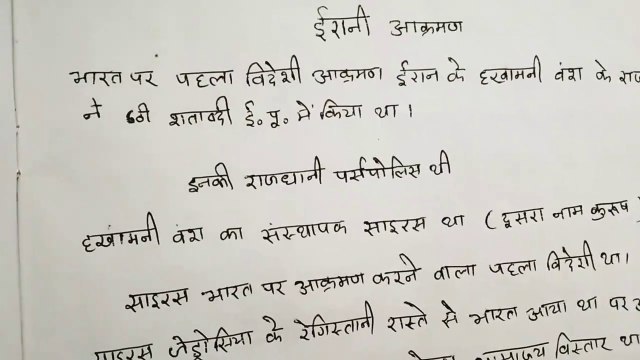 ईरानी आक्रमण
भारत पर पहला विदेशी आक्रमण ईरान के हखामनी वंश के
ने 6ठी शताब्दी ई.पू. में किया था।
इनकी राजधानी पर्सपोलिस थी
हखामनी वंश का संस्थापक साइरस था (दूसरा नाम कुरूष)
साइरस भारत पर आक्रमण करने वाला पहला विदेशी था।
साइरस जेड्रोसिया के रेगिस्तानी रास्ते से भारत आया था पर
साम्राज्य विस्तार था